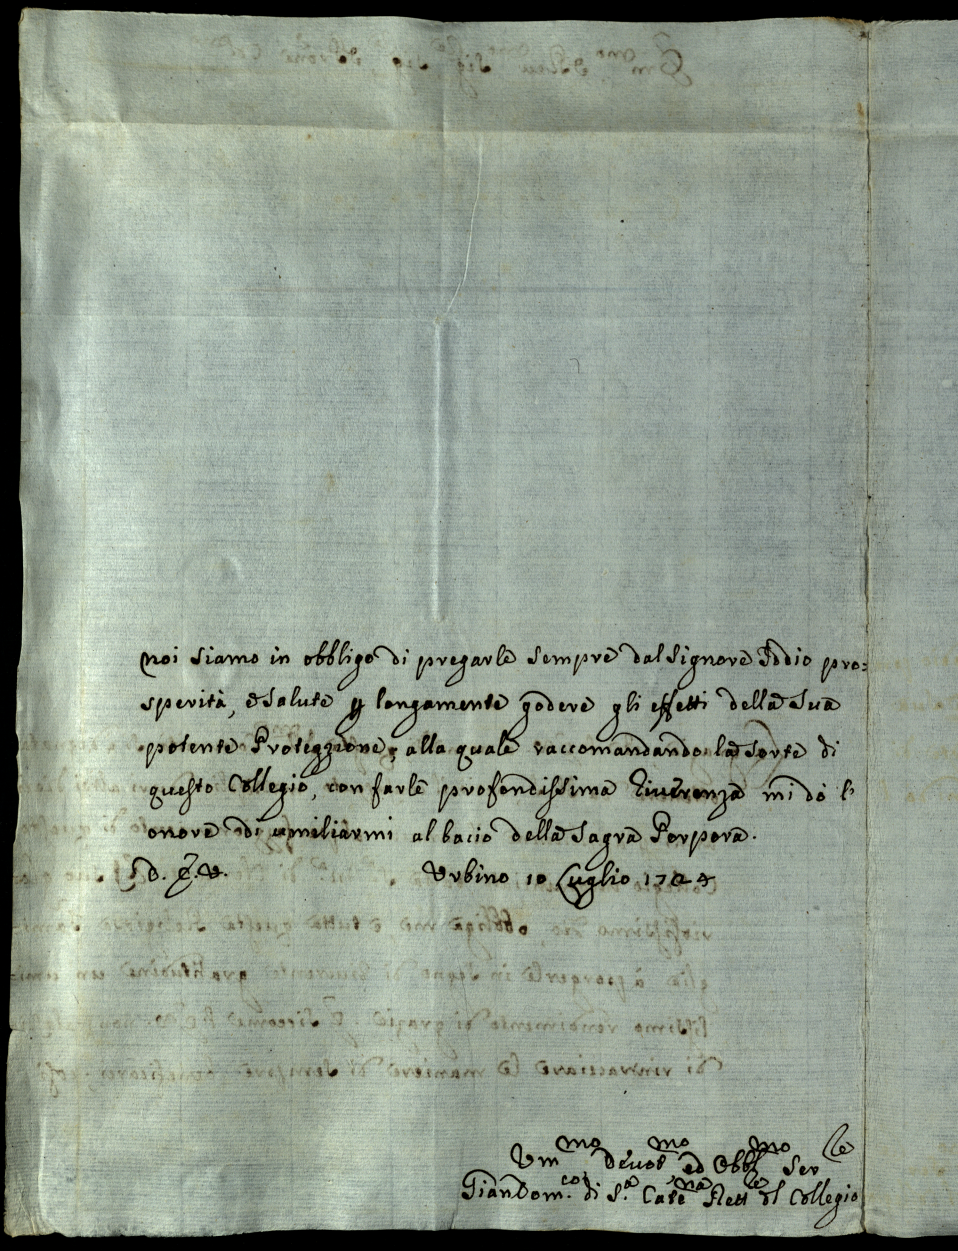 noi siamo in obbligo di pregarle sempre dal Signore Iddio pro:
sperità, e salute p longamente godere gli effetti della Sua
potente Protezzione, alla quale raccomandando la Sorte di
questo Collegio, con farle profondissima Riverenza mi dò l'
onore di umiliarmi al bacio della Sagra Porpora.
D. E. V. Urbino 10 Luglio 1724
Um.mo Devot.mo ed Obb.mo Ser.le
Gian Dom.co di S.a Cate.na Rett.re del Collegio